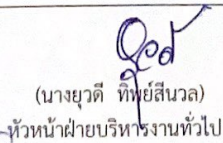 (นางยุวดี ทิพย์สีนวล)
หัวหน้าฝ่ายบริหารงานทั่วไป